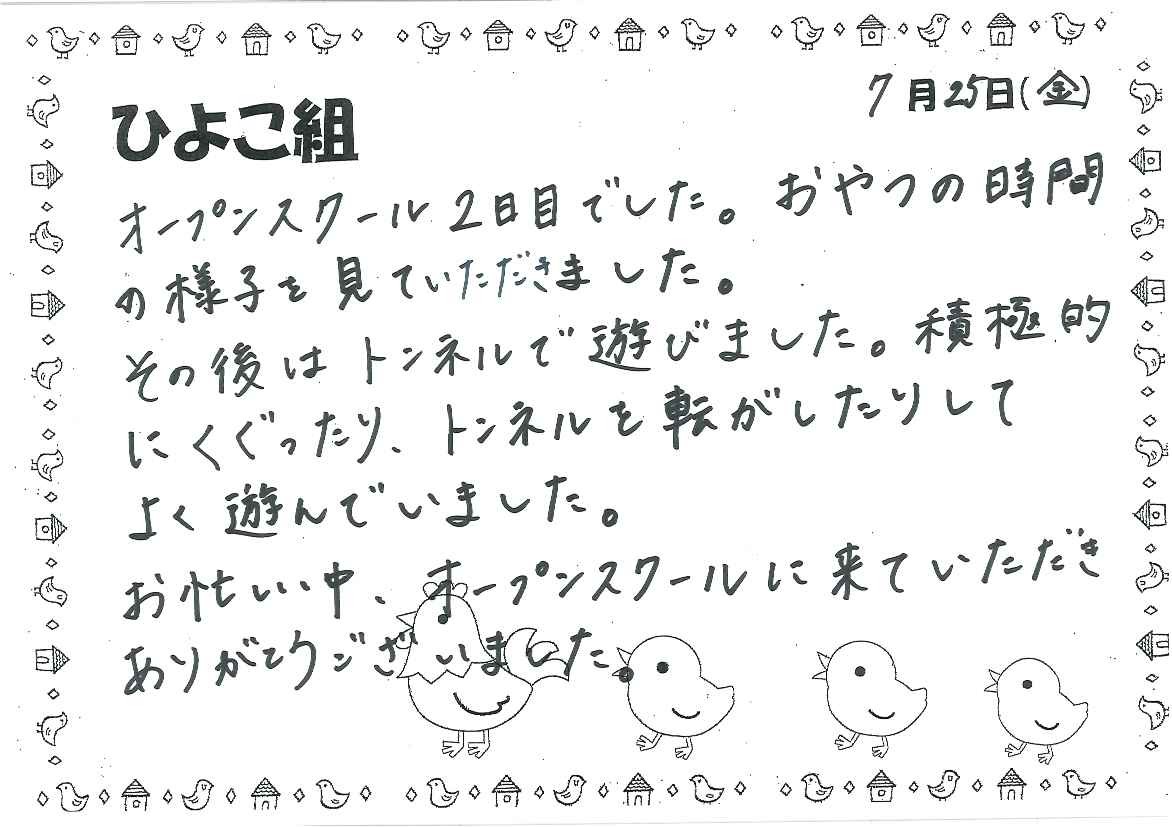 7月25日(金)
ひよこ組
オープンスクール2日目でした。おやつの時間
の様子を見ていただきました。
その後はトンネルで遊びました。積極的
にくぐったり、トンネルを転がしたりして
よく遊んでいました。
お忙しい中、オープンスクールに来ていただき
ありがとうございました。